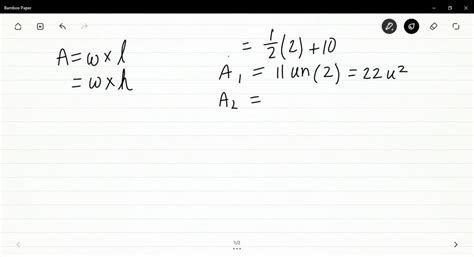 Bamboo Paper
A = w x l
= w x h
= 1/2 (2) + 10
A₁ = 11 un (2) = 22 u²
A₂ =
1/2